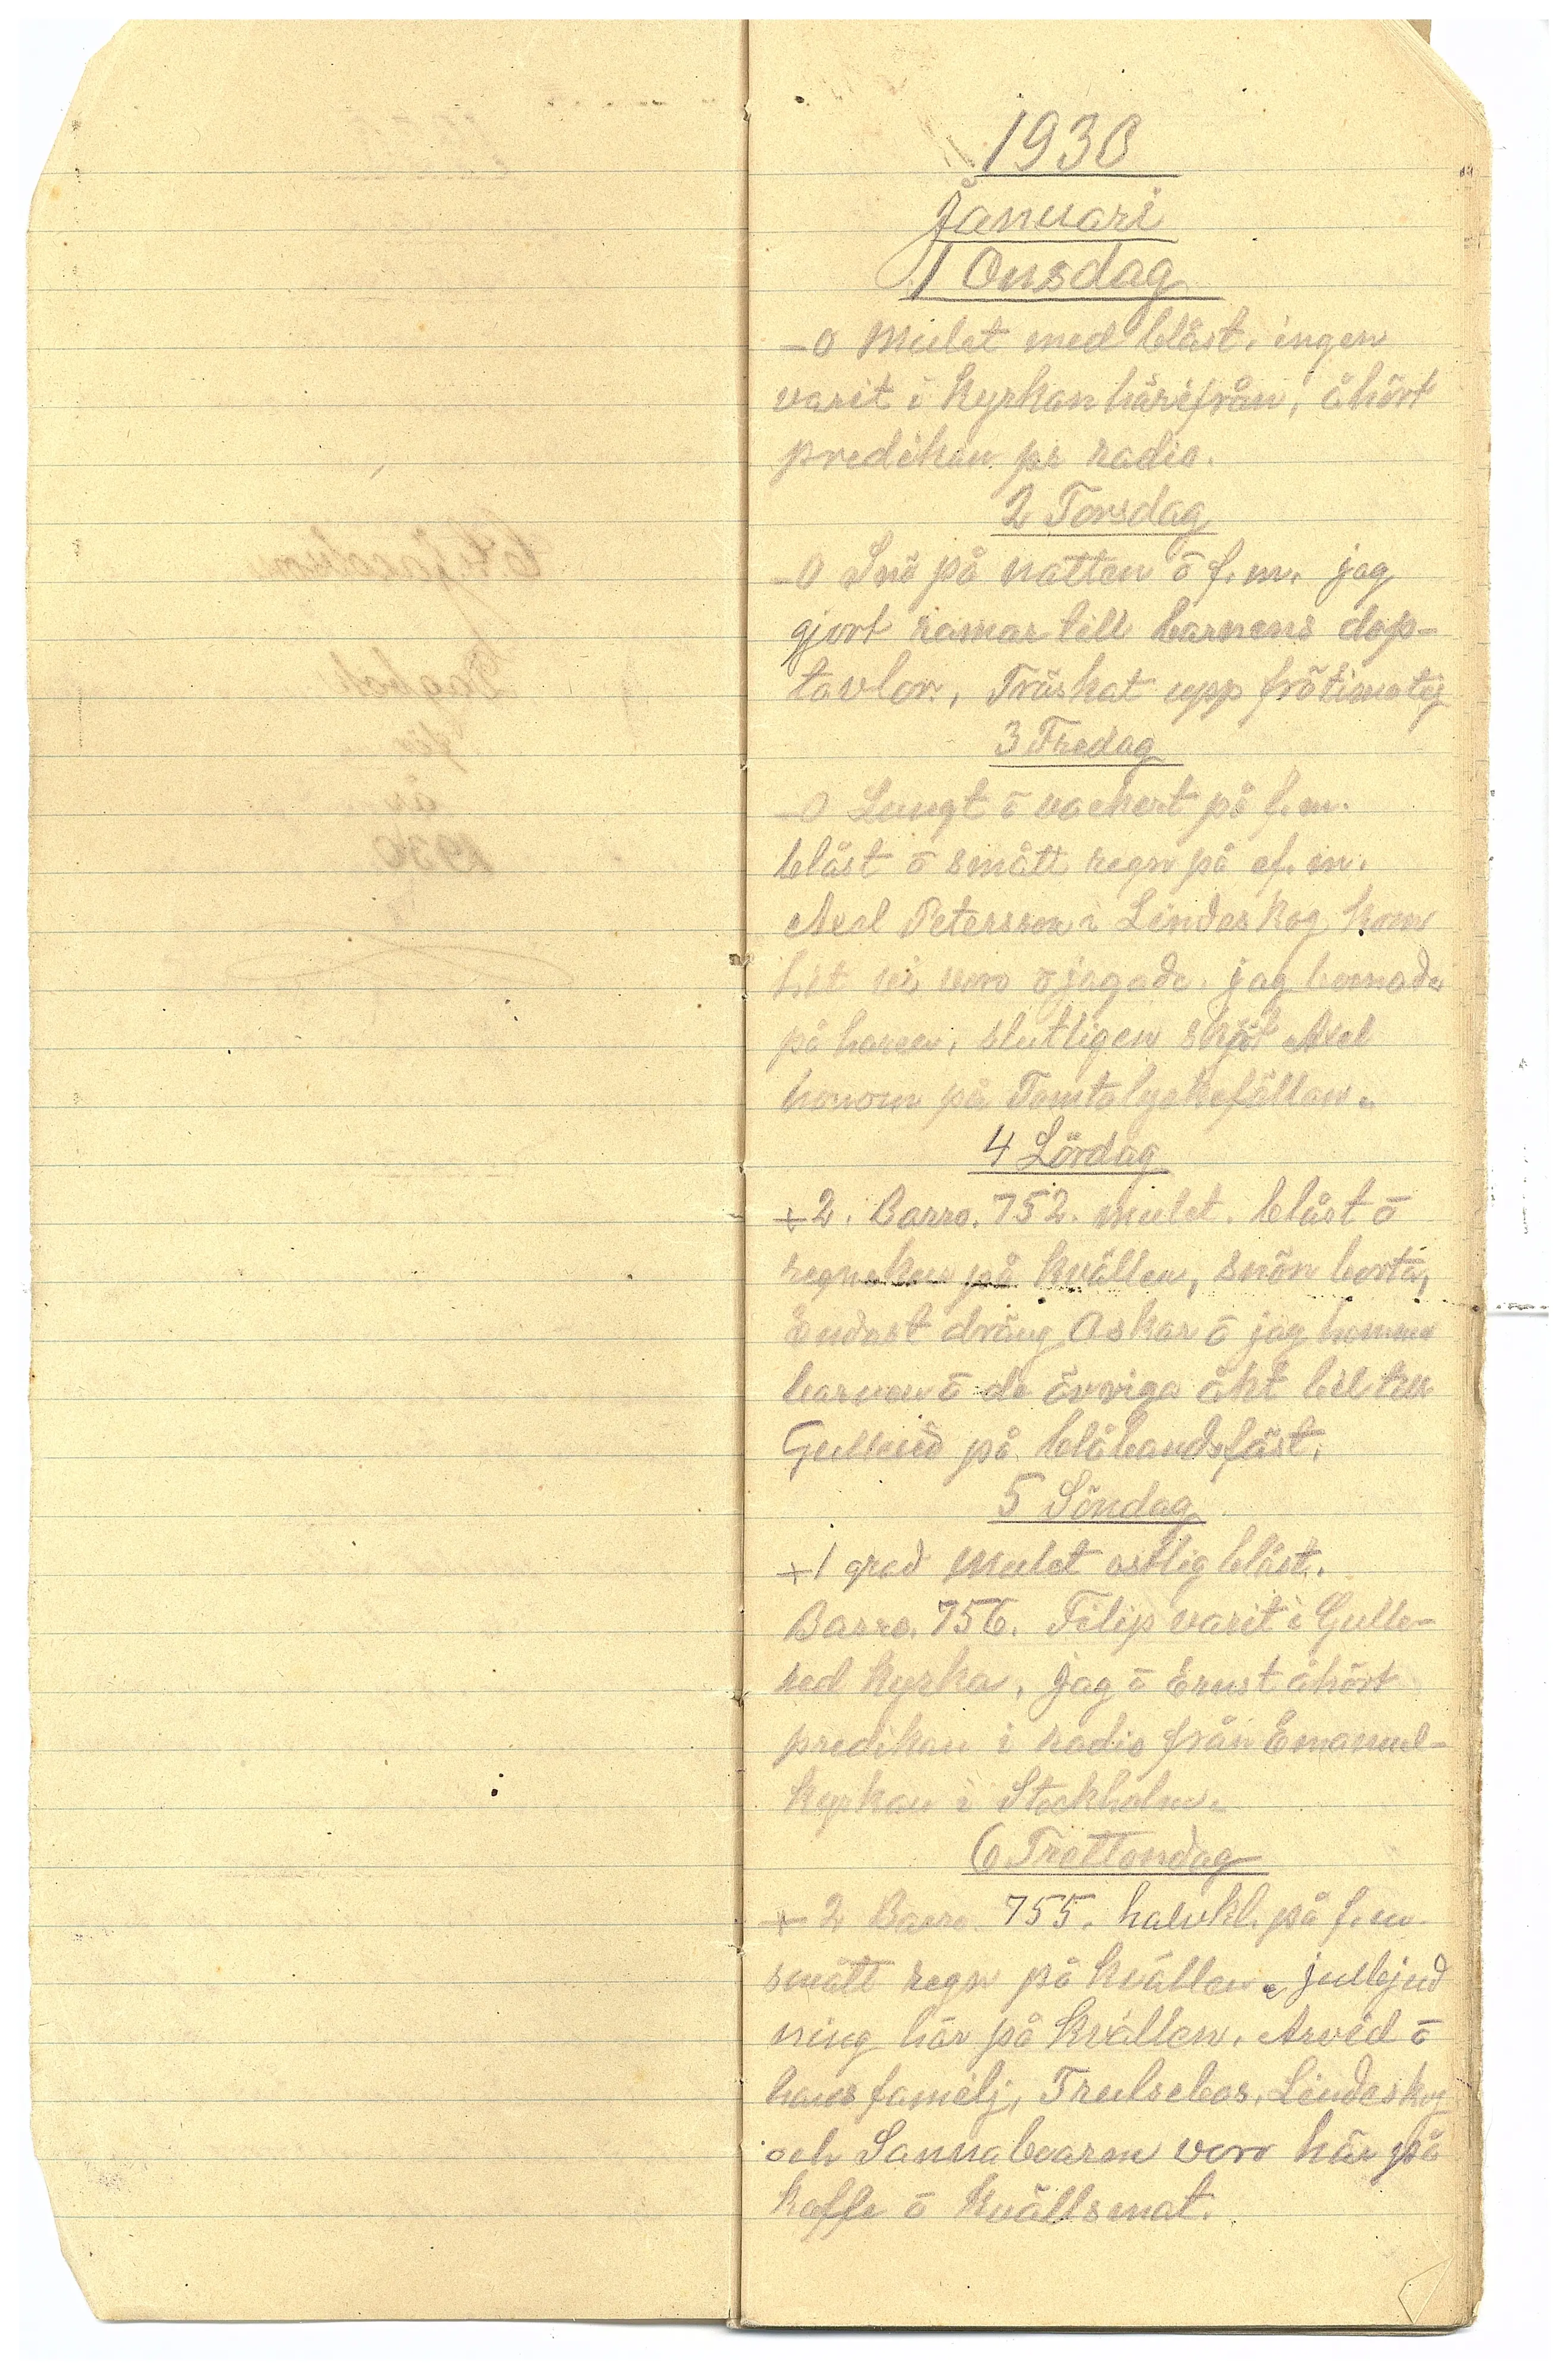 1930
Januari
1 Onsdag
-0 Mulet med blåst. ingen
varit i Kyrkan härifrån, åhört
predikan pr radio.
2 Torsdag
-0 Snö på natten ō f.m. jag
gjort ramar till barnens dop-
tavlor, Tröskat upp frötimotej
3 Fredag
-0 Lungt ō vackert på f.m.
blåst ō smått regn på ef.m.
Axel Petersson i Lindeskog kom
hit vi voro ō jagade. jag bomade
på haren, slutligen sköt Axel
honom på Tomtalyckefällan.
4 Lördag
+2. Barro. 752. mulet. blåst ō
regnskur på Kvällen, snön borta,
Endast dräng Oskar ō jag hemma
barnen ō de övriga åkt bil till
Gullered på blåbandsfäst.
5 Söndag
+1 grad Mulet ostlig blåst.
Barro. 756. Filip varit i Gulle-
red Kyrka, Jag ō Ernst åhört
predikan i radio från Emanuel-
Kyrkan i Stockholm.
6 Trettondag
+2 Barro. 755. halvkl. på f.m.
smått regn på Kvällen. julbjud
ning här på Kvällen. Arvid ō
hans familj, Trulsebos, Lindeskog
och Sannaboarna voro här på
Kaffe ō Kvällsmat.